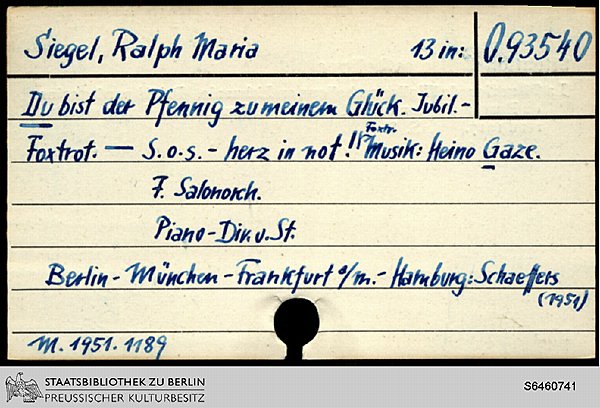 Siegel, Ralph Maria 13 in: O.93540
Du bist der Pfennig zu meinem Glück. Jubil.-
Foxtrot. — S.o.s. - herz in not! Foxtr.
Musik: Heino Gaze.
F. Salonorch.
Piano-Dir. v. St.
Berlin - München - Frankfurt a/m. - Hamburg: Schaeffers
(1951)
M. 1951. 1189
STAATSBIBLIOTHEK ZU BERLIN
PREUSSISCHER KULTURBESITZ
S6460741